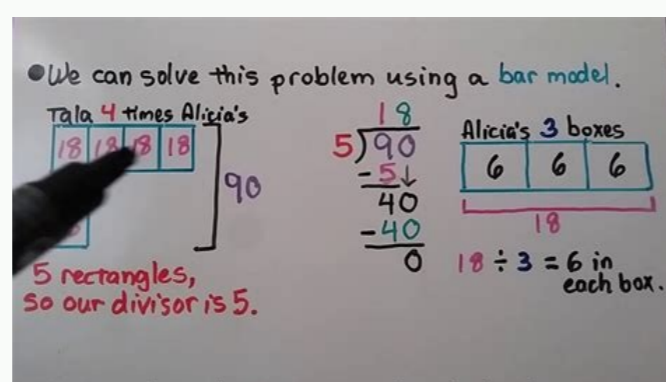 We can solve this problem using a bar model.
Tala 4 times Alicia's
18 18 18 18
90
5 rectangles,
so our divisor is 5.
18
5)90
-5↓
40
-40
0
Alicia's 3 boxes
6 6 6
18
18 ÷ 3 = 6 in
each box.